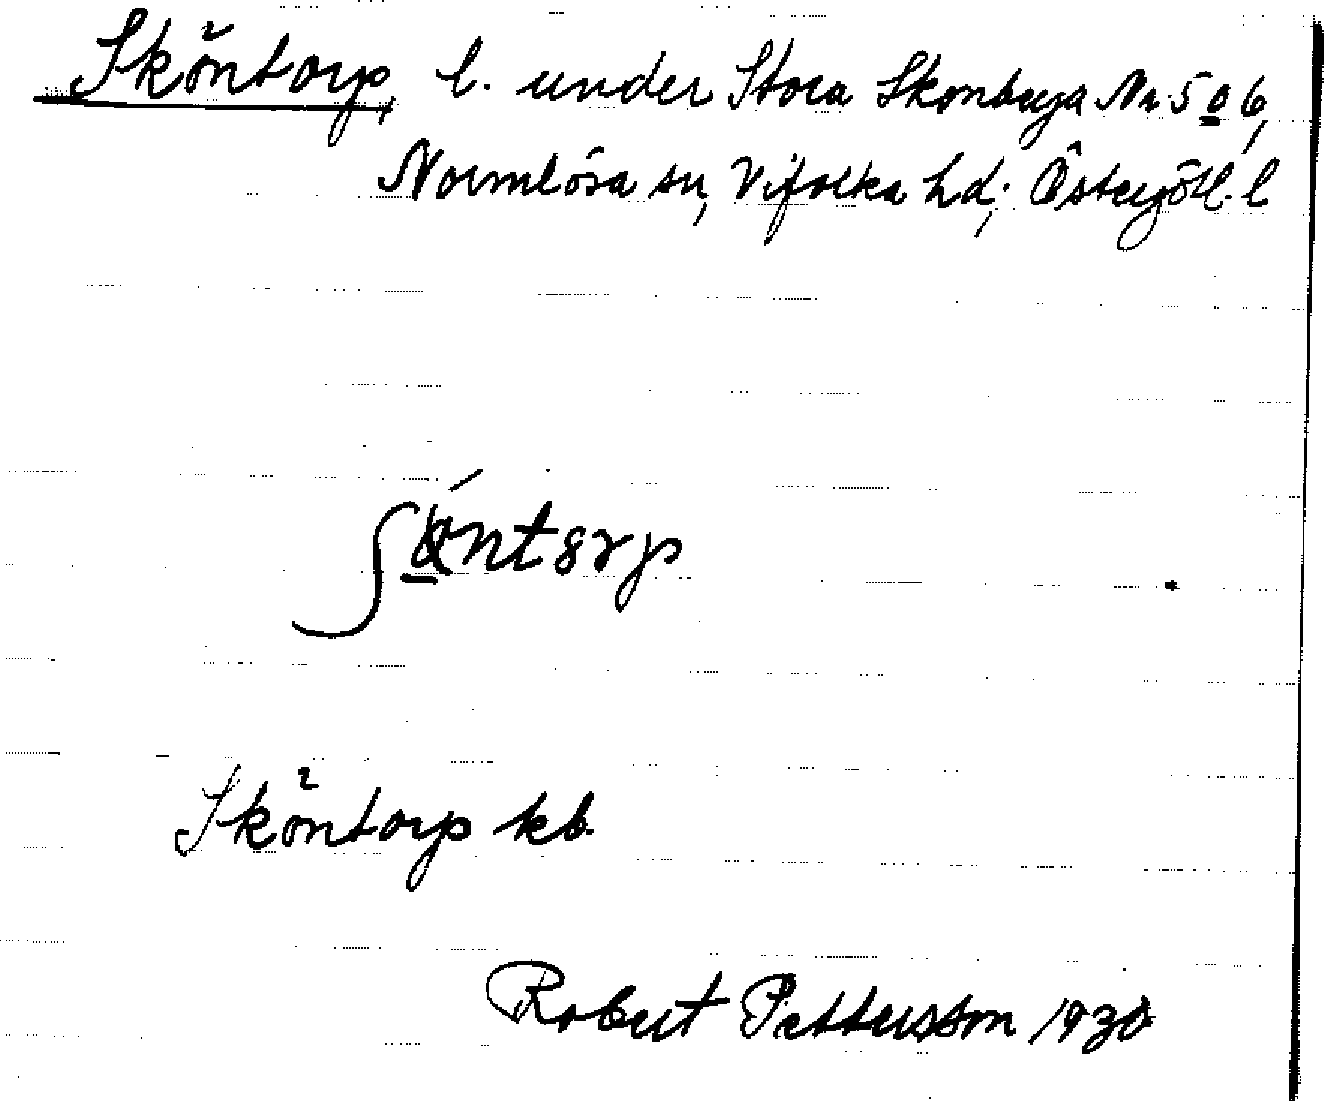 Sköntorp, l. under Stora Skonberga Nr 5 o 6,
Normlösa sn, Vifolka hd; Östergötl. l
Sköntorp kb.
Robert Pettersson 1930